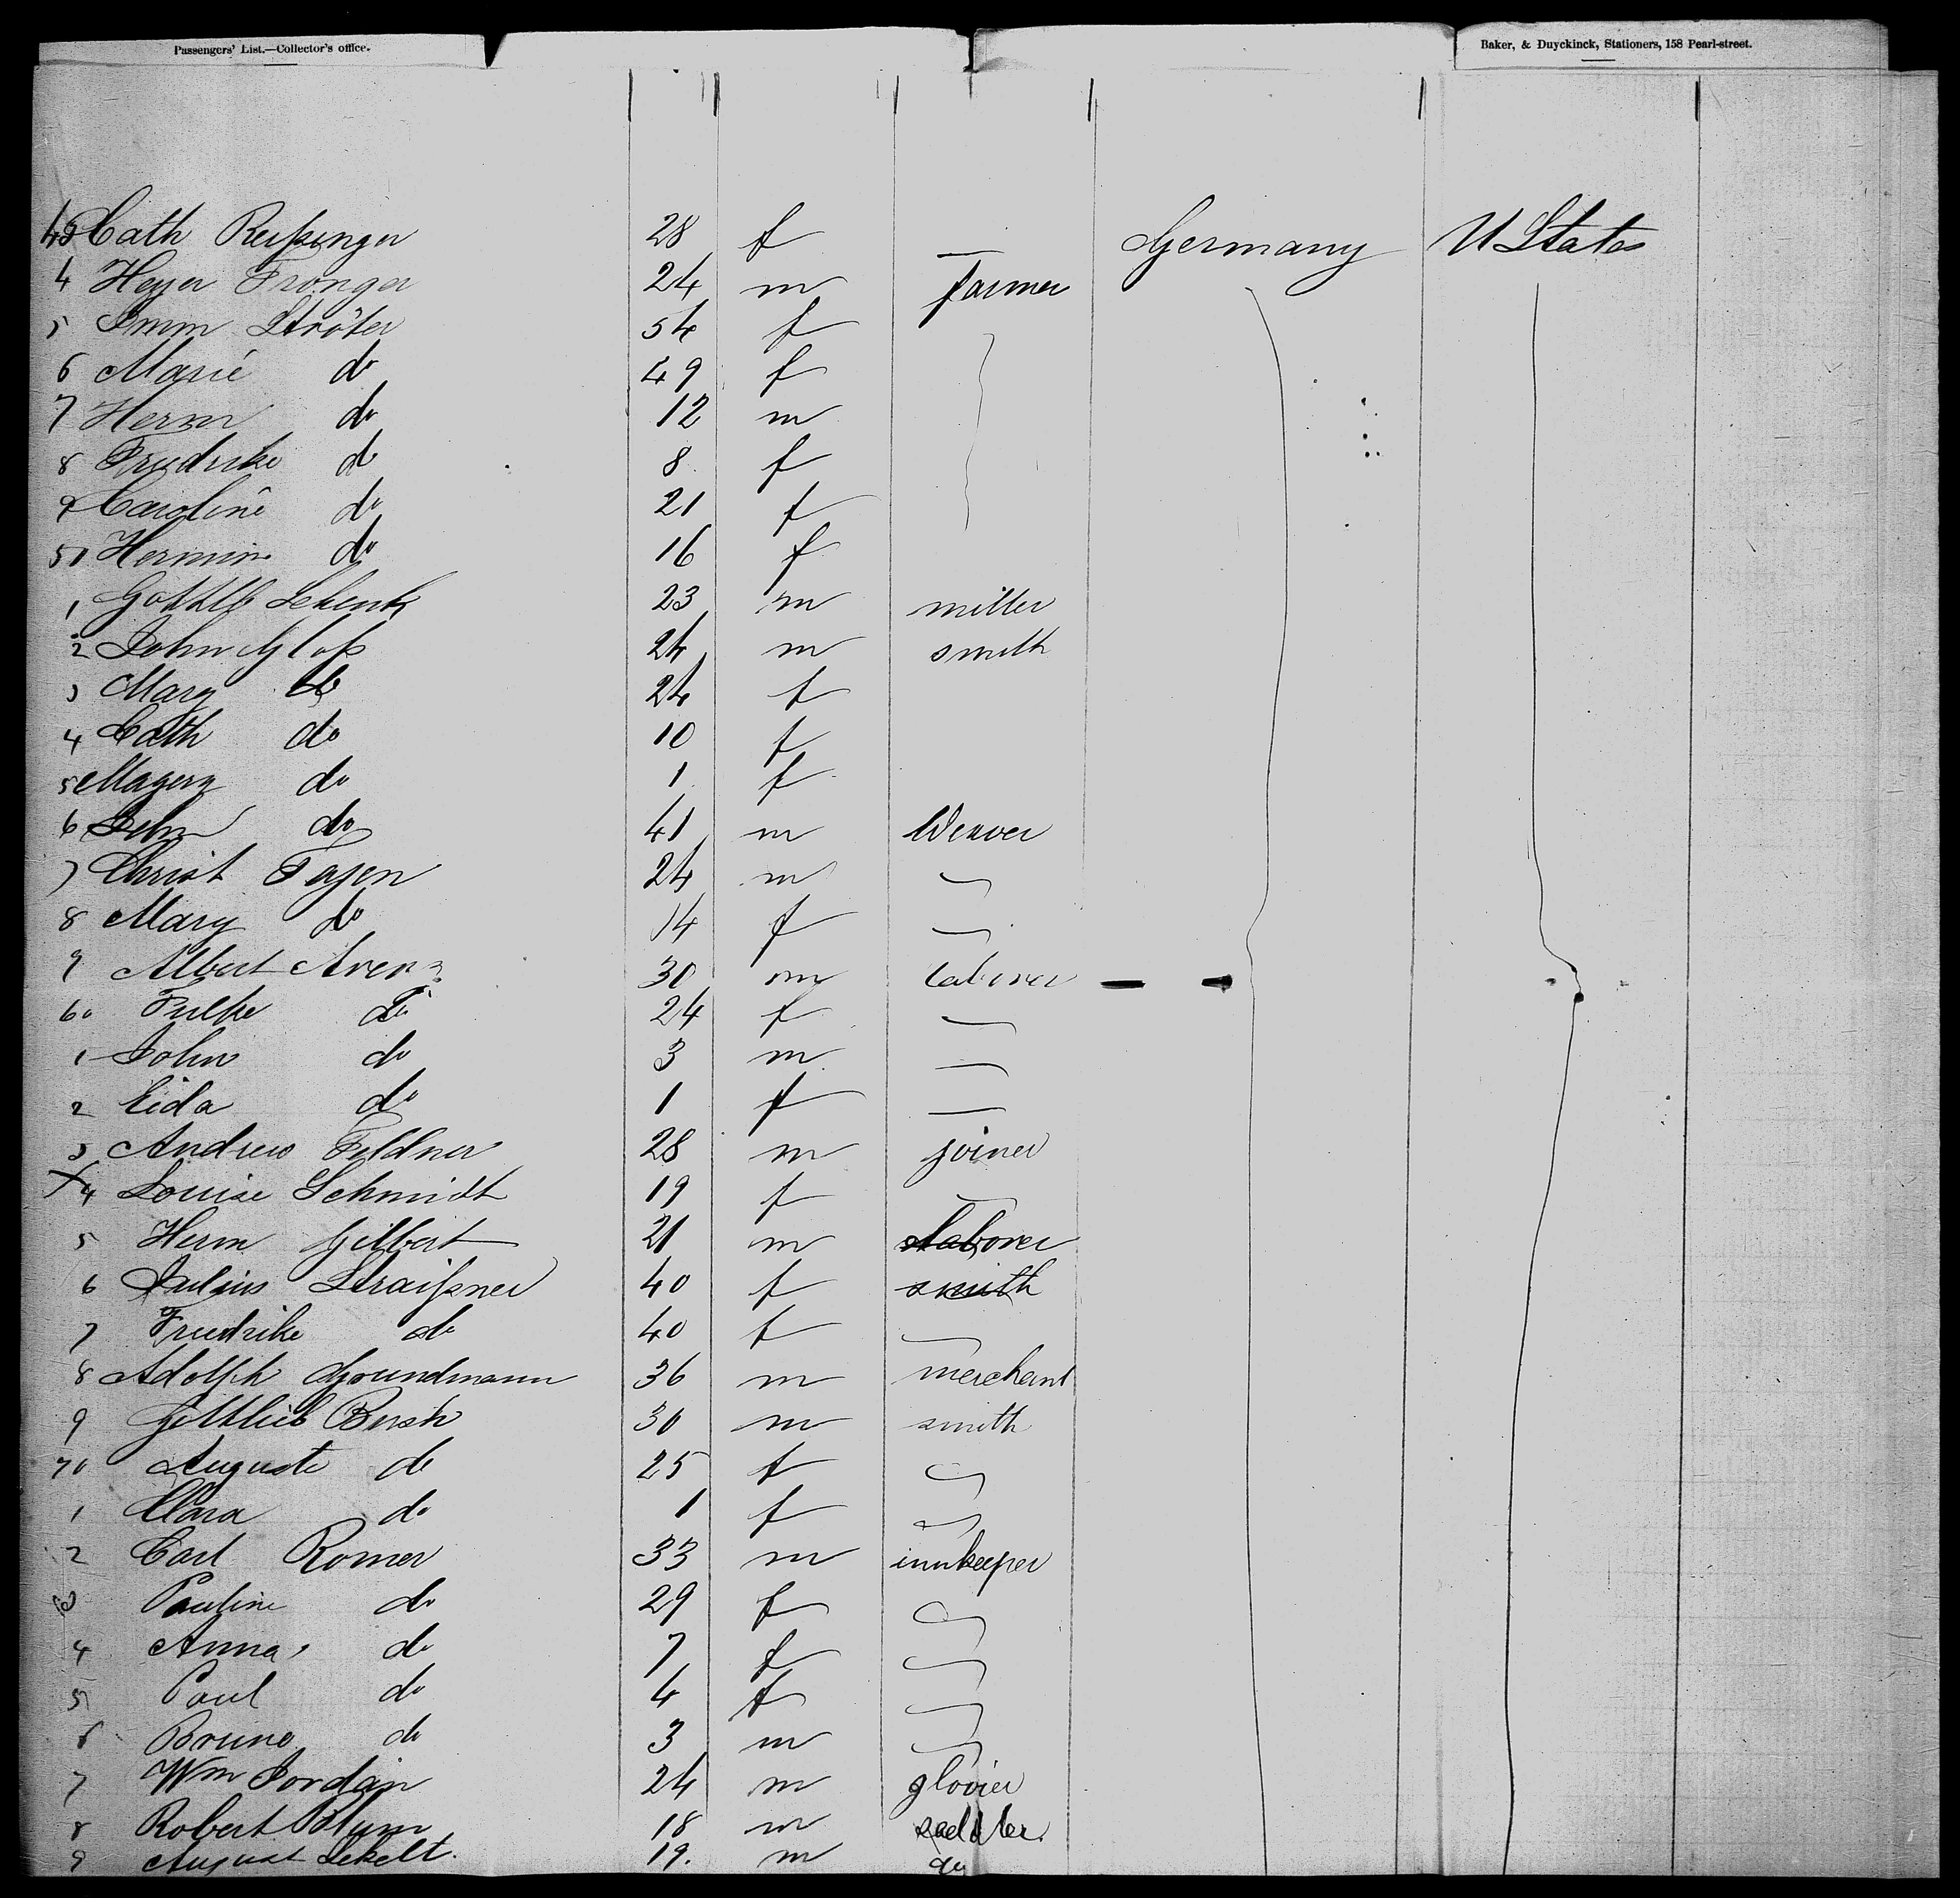 Passengers' List.—Collector's office.
Baker, & Duyckinck, Stationers, 158 Pearl-street.
43 Cath 28 f — Germany U States
4 Heyer Fronger 24 m farmer
5 Imm Ströter 54 f
6 Marie do 49 f
7 Herm do 12 m
8 Friedrike do 8 f
9 Caroline do 21 f
50 Hermine do 16 f
1 Gottlib Schenk 23 m miller
2 John Gloß 24 m smith
3 Mary do 24 f
4 Cath do 10 f
5 do 1 f
6 John do 41 m Weaver
7 Christ Fajen 24 m —
8 Mary do 14 f —
9 Albert Arens 30 m laborer
60 do 24 f —
1 John do 3 m —
2 Eida do 1 f —
3 Andrew Feldner 28 m joiner
X4 Louise Schmidt 19 f —
5 Herm Gilbert 21 m laborer
6 Julius Straißner 40 f smith
7 Friedrike do 40 f —
8 Adolph Grundmann 36 m merchant
9 Gottlieb Bush 30 m smith
70 Auguste do 25 f —
1 Clara do 1 f —
2 Carl Romer 33 m innkeeper
3 Pauline do 29 f —
4 Anna do 7 f —
5 Paul do 4 f —
6 Bruno do 3 m —
7 Wm Jordan 24 m glovier
8 Robert Blum 18 m saddler
9 August Sekelt. 19. m do